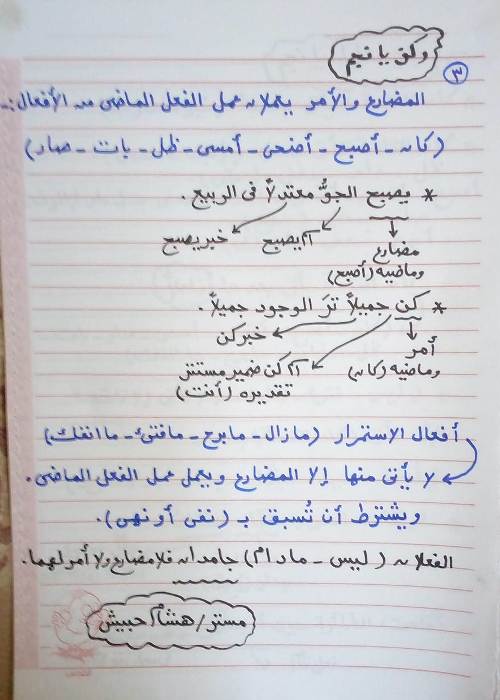 وكن يا نجم
٣
المضارع والأمر يعملان عمل الفعل الماضى من الأفعال:-
(كان - أصبح - أضحى - أمسى - ظل - بات - صار)
* يصبح الجوُّ معتدلاً فى الربيع.
مضارع وماضيه (أصبح)
اسم يصبح
خبر يصبح
* كن جميلاً ترَ الوجود جميلاً.
أمر وماضيه (كان)
خبر كن
اسم كن ضمير مستتر
تقديره (أنت)
أفعال الاستمرار (مازال - مابرح - مافتئ - ماانفك)
لا يأتى منها إلا المضارع ويعمل عمل الفعل الماضى.
ويشترط أن تُسبق بـ (نفى أو نهى).
الفعلان (ليس - مادام) جامدان فلا مضارع ولا أمر لهما.
مستر/ هشام حبيش